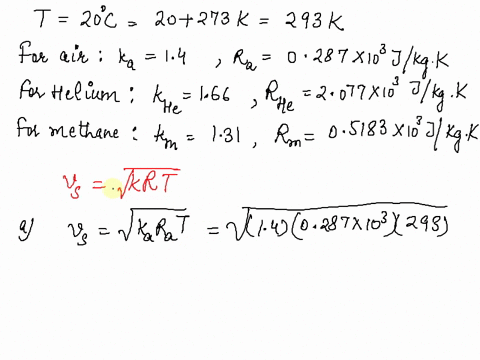 T = 20°C = 20+273 K = 293 K
For air : kₐ = 1.4 , Rₐ = 0.287×10³ J/kg.K
For Helium : k_He = 1.66 , R_He = 2.077×10³ J/kg.K
For methane : kₘ = 1.31 , Rₘ = 0.5183×10³ J/kg.K
vₛ = √kRT
a) vₛ = √kₐRₐT = √(1.4)(0.287×10³)(293)